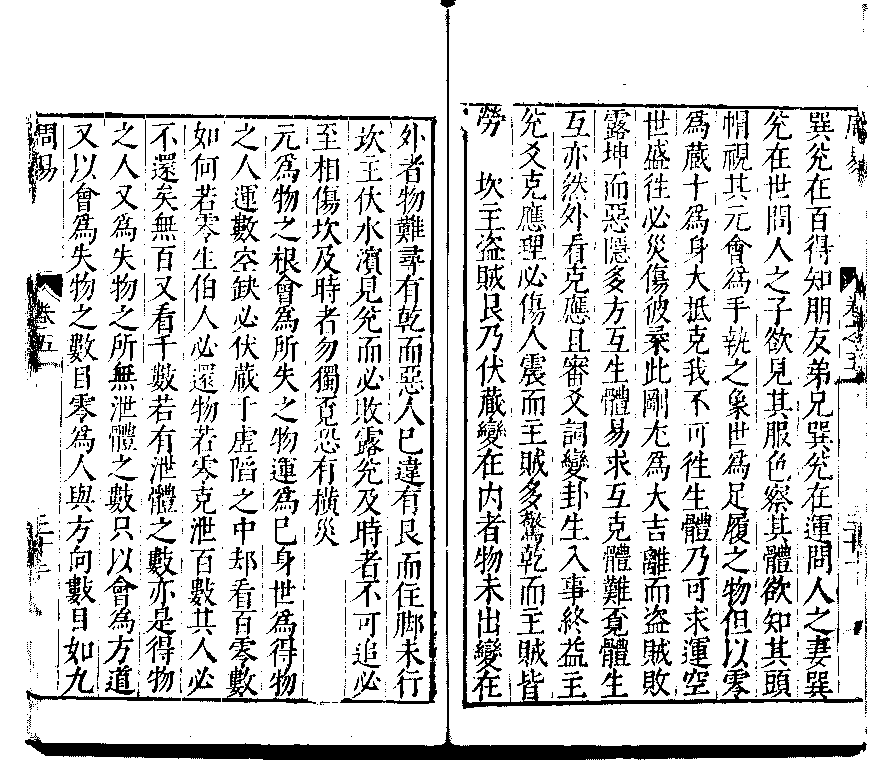 周易
卷之五
二十一
巽兊在百得知朋友弟兄巽兊在運問人之妻巽
兊在世問人之子欲見其服色察其體欲知其頭
帽視其元會為手執之象世為足履之物但以零
為蔵十為身大抵克我不可徃生體乃可求運空
世盛徃必災傷彼乗此剛尢為大吉離而盗賊敗
露坤而惡隱多方互生體易求互克體難覔體生
互亦然外看克應且審爻詞變卦生入事終益主
兊爻克應理必傷人震而主賊多驚乾而主賊皆
勞　坎主盗賊艮乃伏蔵變在内者物未出變在
外者物難尋有乾而惡人已違有艮而住脚未行
坎主伏水濵見兊而必敗露兊及時者不可追必
至相傷坎及時者勿獨覔恐有橫災
元為物之根會為所失之物運為已身世為得物
之人運數空缺必伏蔵于虚陷之中却看百零數
如何若零生伯人必還物若零克泄百數其人必
不還矣無百又看千數若有泄體之數亦是得物
之人又為失物之所無泄體之數只以會為方道
又以會為失物之數目零為人與方向數目如九
周易
卷五